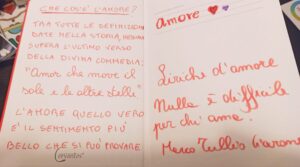 CHE COS'È L'AMORE?
TRA TUTTE LE DEFINIZIONI
DATE NELLA STORIA, NESSUNA
SUPERA L'ULTIMO VERSO
DELLA DIVINA COMMEDIA:
"Amor che move il
sole e le altre stelle"
L'AMORE QUELLO VERO
È IL SENTIMENTO PIÙ
BELLO CHE SI PUÒ PROVARE
amore
Liriche d'amore
Nulla è difficile
per chi ama.
Marco Tullio Cicerone